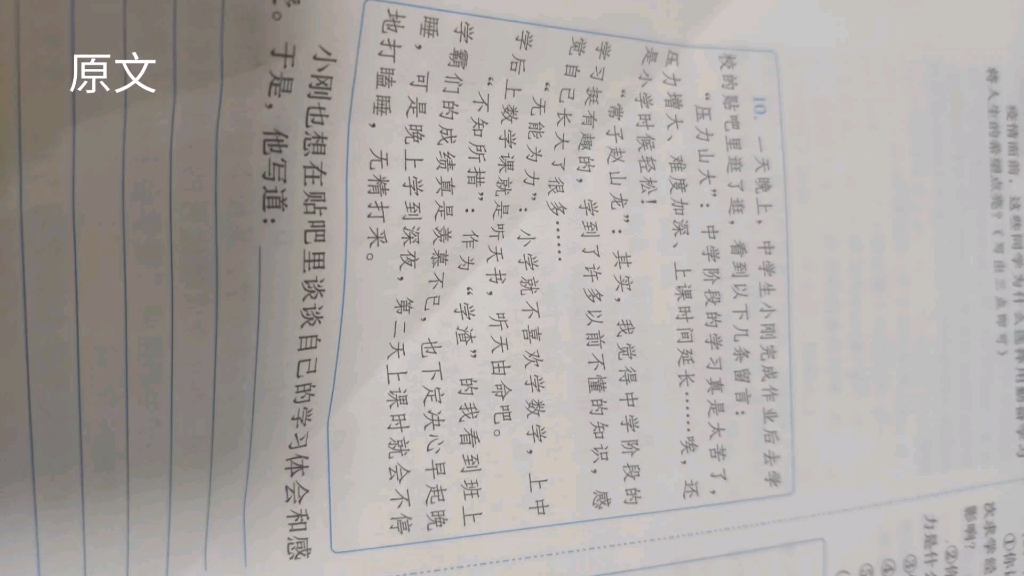 原文
疫情面前，这些同学为什么选择用勤奋学习
将人生的希望点亮？（写出三点即可）
10. 一天晚上，中学生小刚完成作业后去学
校的贴吧里逛了逛，看到以下几条留言：
“压力山大”：中学阶段的学习真是太苦了，
压力增大、难度加深、上课时间延长……唉，还
是小学时候轻松！
“常子赵山龙”：其实，我觉得中学阶段的
学习挺有趣的，学到了许多以前不懂的知识，感
觉自己长大了很多……
“无能为力”：小学就不喜欢学数学，上中
学后上数学课就是听天书，听天由命吧。
“不知所措”：作为“学渣”的我看到班上
学霸们的成绩真是羡慕不已，也下定决心早起晚
睡，可是晚上学到深夜，第二天上课时就会不停
地打瞌睡，无精打采。
小刚也想在贴吧里谈谈自己的学习体会和感
。于是，他写道：
①
次求学经
影响？
②
力是什么
③
④
⑤